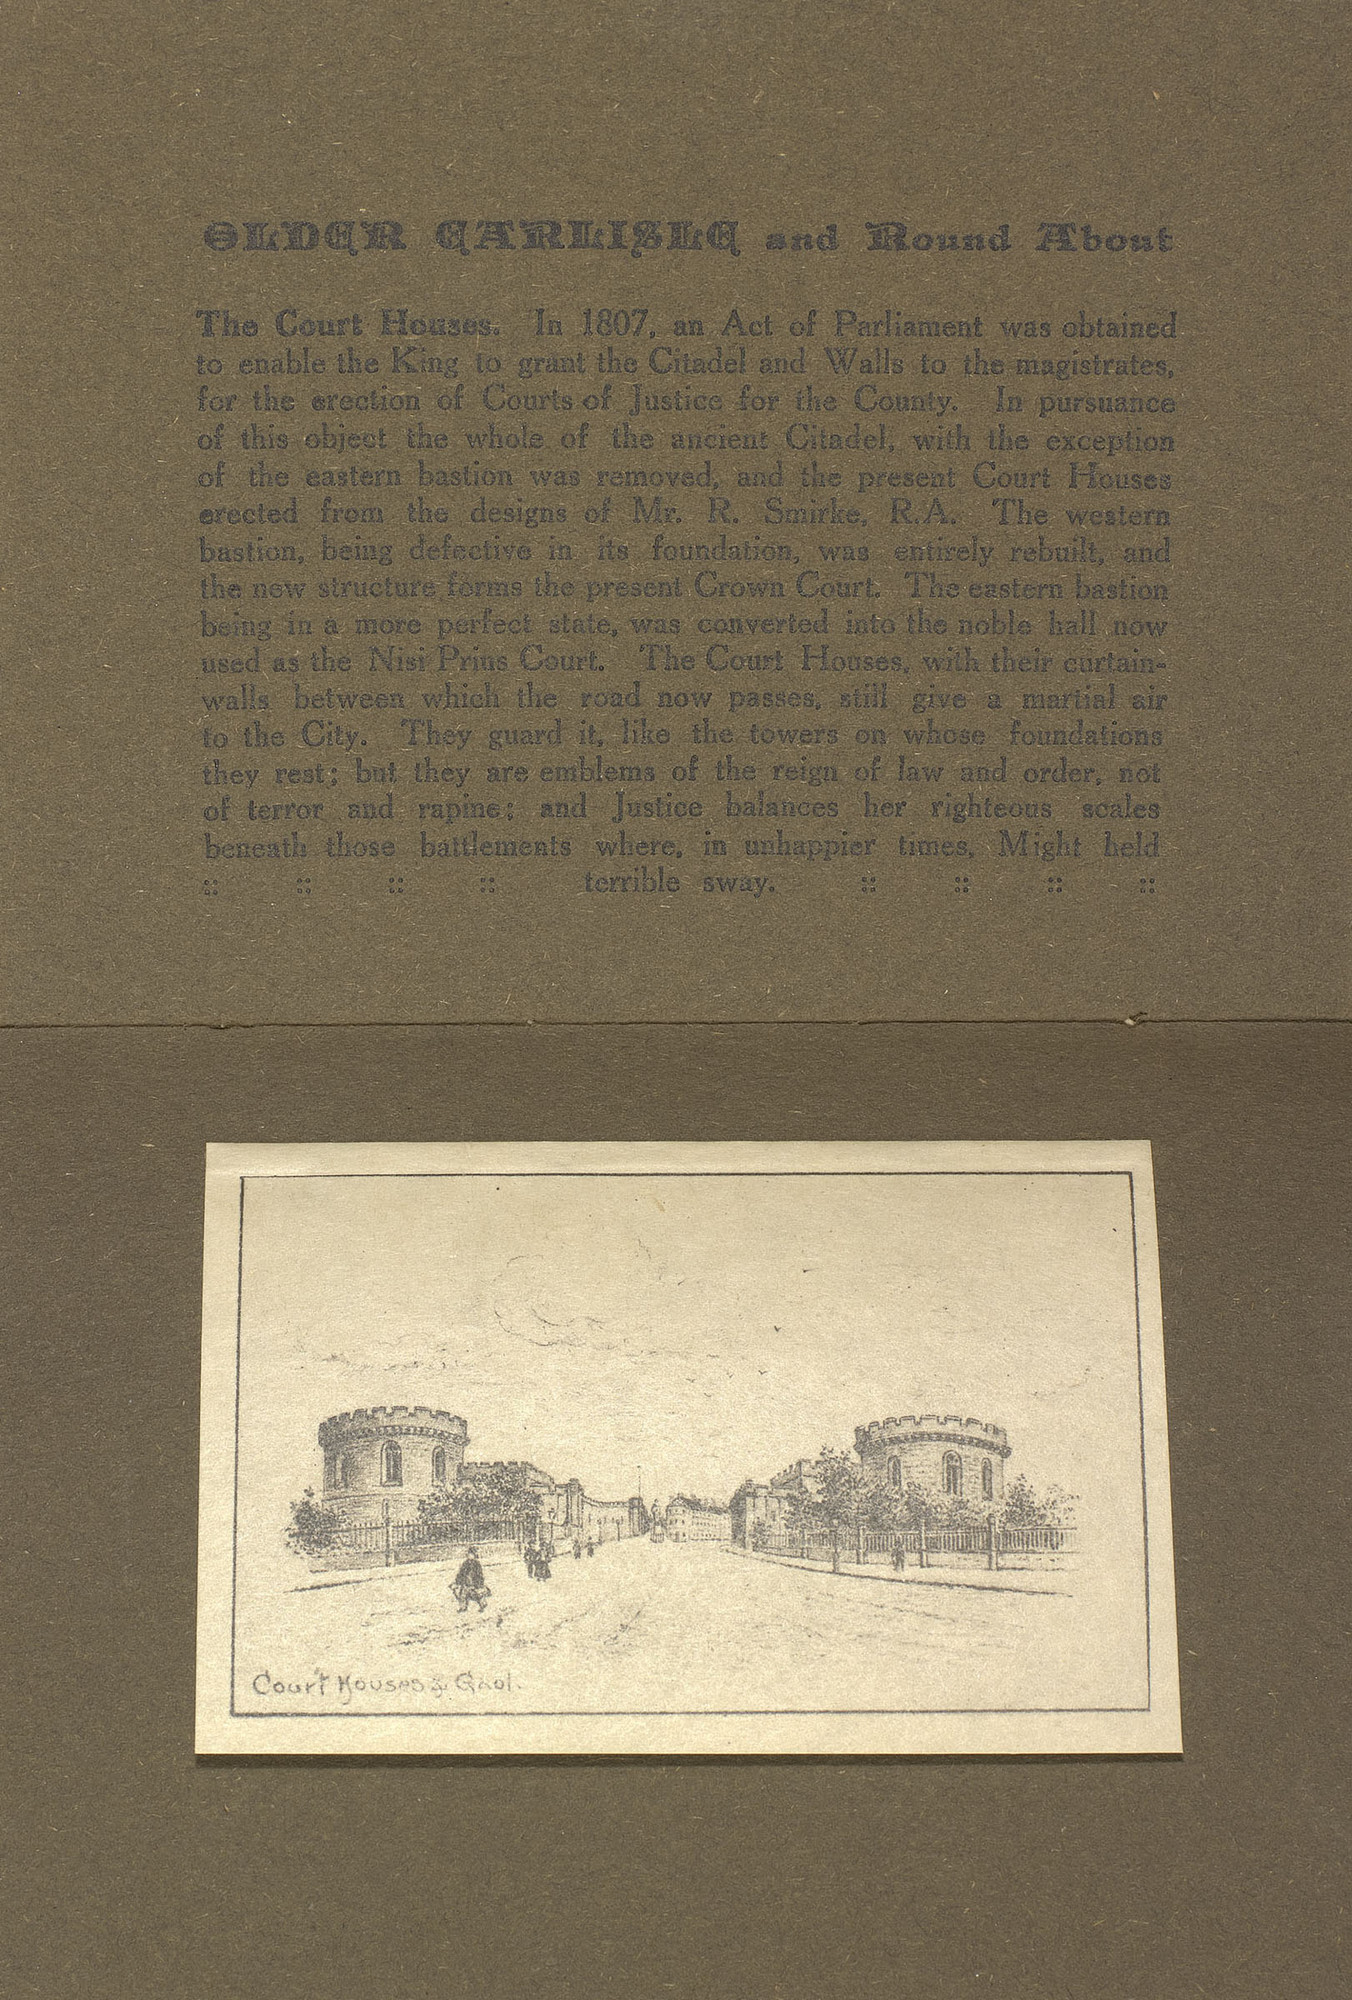 OLDER CARLISLE and Round About
The Court Houses. In 1807, an Act of Parliament was obtained
to enable the King to grant the Citadel and Walls to the magistrates,
for the erection of Courts of Justice for the County. In pursuance
of this object the whole of the ancient Citadel, with the exception
of the eastern bastion was removed, and the present Court Houses
erected from the designs of Mr. R. Smirke, R.A. The western
bastion, being defective in its foundation, was entirely rebuilt, and
the new structure forms the present Crown Court. The eastern bastion
being in a more perfect state, was converted into the noble hall now
used as the Nisi Prius Court. The Court Houses, with their curtain-
walls between which the road now passes, still give a martial air
to the City. They guard it, like the towers on whose foundations
they rest; but they are emblems of the reign of law and order, not
of terror and rapine; and Justice balances her righteous scales
beneath those battlements where, in unhappier times, Might held
:: :: :: :: terrible sway. :: :: :: ::
Court Houses & Gaol.